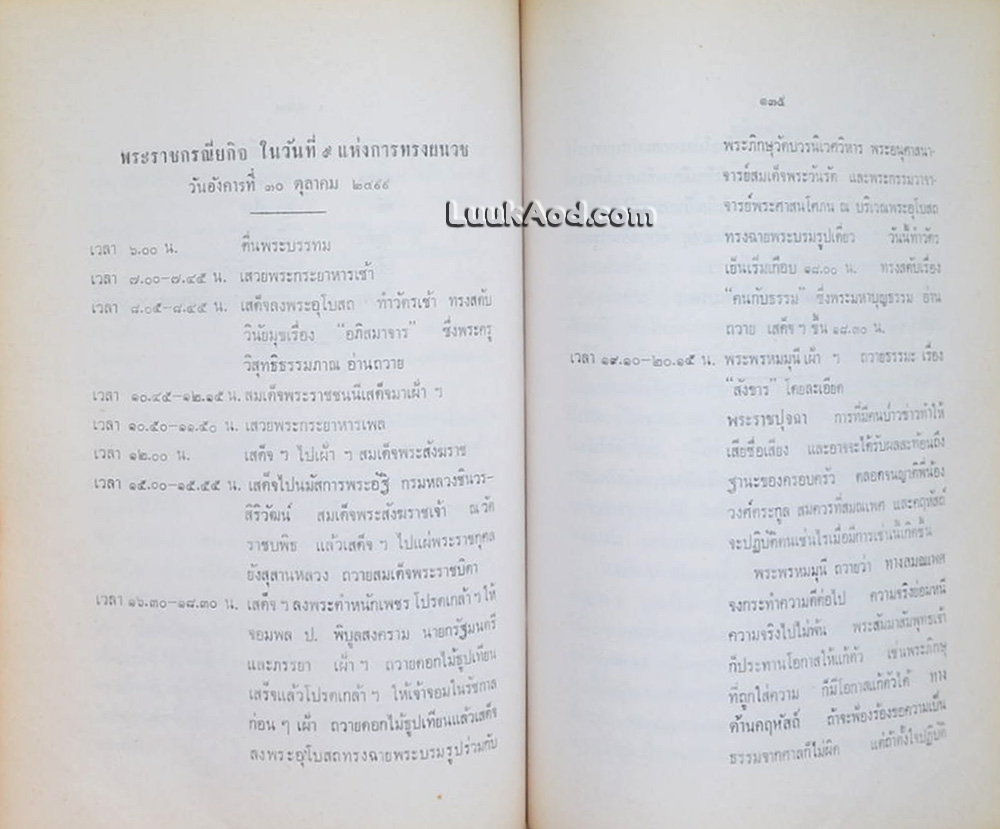 พระราชกรณียกิจ ในวันที่ ๙ แห่งการทรงผนวช
วันอังคารที่ ๓๐ ตุลาคม ๒๔๙๙
เวลา ๖.๐๐ น. ตื่นพระบรรทม
เวลา ๗.๐๐–๗.๔๕ น. เสวยพระกระยาหารเช้า
เวลา ๘.๐๕–๘.๔๕ น. เสด็จลงพระอุโบสถ ทำวัตรเช้า ทรงสดับ
วินัยมุขเรื่อง "อภิสมาจาร" ซึ่งพระครู
วิสุทธิธรรมภาณ อ่านถวาย
เวลา ๑๐.๔๕–๑๒.๑๕ น. สมเด็จพระราชชนนีเสด็จมาเฝ้า ฯ
เวลา ๑๐.๕๐–๑๑.๕๐ น. เสวยพระกระยาหารเพล
เวลา ๑๒.๐๐ น. เสด็จ ฯ ไปเฝ้า ฯ สมเด็จพระสังฆราช
เวลา ๑๕.๐๐–๑๕.๕๕ น. เสด็จไปนมัสการพระอัฐิ กรมหลวงชินวร-
สิริวัฒน์ สมเด็จพระสังฆราชเจ้า ณ วัด
ราชบพิธ แล้วเสด็จ ฯ ไปแผ่พระราชกุศล
ยังสุสานหลวง ถวายสมเด็จพระราชบิดา
เวลา ๑๖.๓๐–๑๘.๓๐ น. เสด็จ ฯ ลงพระตำหนักเพชร โปรดเกล้า ฯ ให้
จอมพล ป. พิบูลสงคราม นายกรัฐมนตรี
และภรรยา เฝ้า ฯ ถวายดอกไม้ธูปเทียน
เสร็จแล้วโปรดเกล้า ฯ ให้เจ้าจอมในรัชกาล
ก่อน ๆ เฝ้า ถวายดอกไม้ธูปเทียนแล้วเสด็จ
ลงพระอุโบสถทรงฉายพระบรมรูปร่วมกับ
๑๓๕
พระภิกษุวัดบวรนิเวศวิหาร พระอนุศาสนา-
จารย์สมเด็จพระวันรัต และพระกรรมวาจา-
จารย์พระศาสนโศภน ณ บริเวณพระอุโบสถ
LuukAod.com
ทรงฉายพระบรมรูปเดี่ยว วันนี้ทำวัตร
เย็นเริ่มเกือบ ๑๘.๐๐ น. ทรงสดับเรื่อง
"คนกับธรรม" ซึ่งพระมหาบุญธรรม อ่าน
ถวาย เสด็จ ฯ ขึ้น ๑๘.๓๐ น.
เวลา ๑๙.๑๐–๒๐.๑๕ น. พระพรหมมุนี เฝ้า ฯ ถวายธรรมะ เรื่อง
"สังขาร" โดยละเอียด
พระราชปุจฉา การที่มีคนบ่าวข่าวทำให้
เสียชื่อเสียง และอาจจะได้รับผลสะท้อนถึง
ฐานะของครอบครัว ตลอดจนญาติพี่น้อง
วงศ์ตระกูล สมควรที่สมณเพศ และคฤหัสถ์
จะปฏิบัติตนเช่นไรเมื่อมีการเช่นนี้เกิดขึ้น
พระพรหมมุนี ถวายว่า ทางสมณเพศ
จงกระทำความดีต่อไป ความจริงย่อมหนี
ความจริงไปไม่พ้น พระสัมมาสัมพุทธเจ้า
ก็ประทานโอกาสให้แก้ตัว เช่นพระภิกษุ
ที่ถูกใส่ความ ก็มีโอกาสแก้ตัวได้ ทาง
ด้านคฤหัสถ์ ถ้าจะฟ้องร้องขอความเป็น
ธรรมจากศาลก็ไม่ผิด แต่ถ้าตั้งใจปฏิบัติ